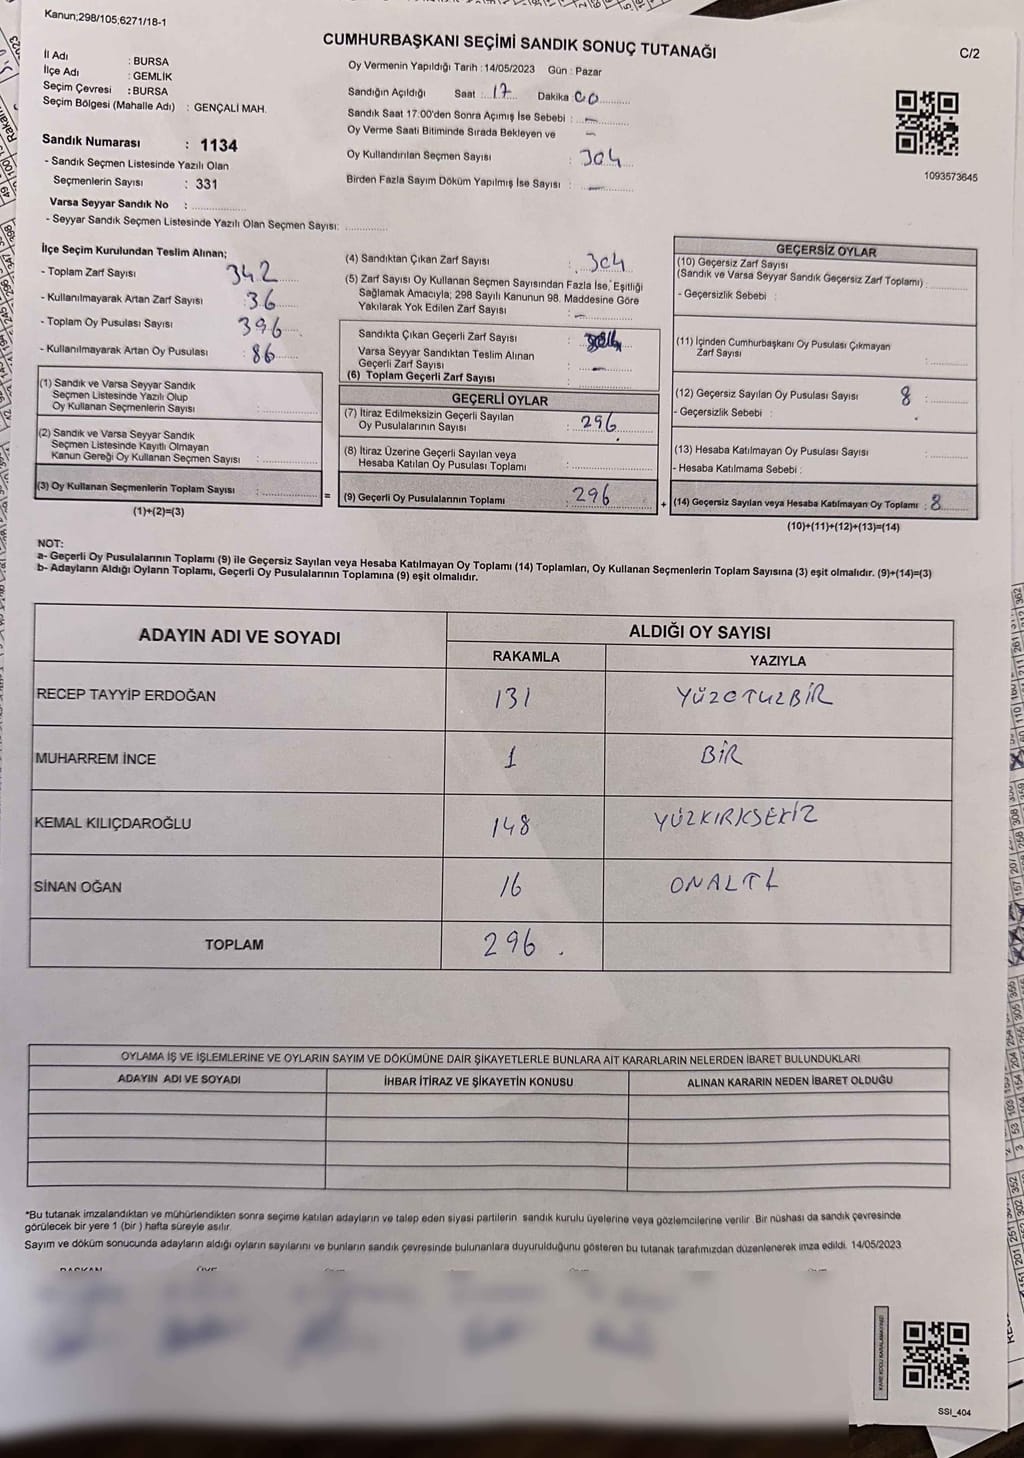 Kanun;298/105;6271/18-1
CUMHURBAŞKANI SEÇİMİ SANDIK SONUÇ TUTANAĞI
C/2
İl Adı : BURSA
İlçe Adı : GEMLİK
Seçim Çevresi : BURSA
Seçim Bölgesi (Mahalle Adı) : GENÇALİ MAH.
Oy Vermenin Yapıldığı Tarih : 14/05/2023 Gün : Pazar
Sandığın Açıldığı Saat : 17 Dakika 00
Sandık Saat 17:00'den Sonra Açımış İse Sebebi : -
Oy Verme Saati Bitiminde Sırada Bekleyen ve -
Oy Kullandırılan Seçmen Sayısı : 304
Birden Fazla Sayım Döküm Yapılmış İse Sayısı : -
1093573645
Sandık Numarası : 1134
- Sandık Seçmen Listesinde Yazılı Olan
Seçmenlerin Sayısı : 331
Varsa Seyyar Sandık No :
- Seyyar Sandık Seçmen Listesinde Yazılı Olan Seçmen Sayısı:
İlçe Seçim Kurulundan Teslim Alınan;
- Toplam Zarf Sayısı 342
- Kullanılmayarak Artan Zarf Sayısı : 36
- Toplam Oy Pusulası Sayısı 396
- Kullanılmayarak Artan Oy Pusulası : 86
(1) Sandık ve Varsa Seyyar Sandık
Seçmen Listesinde Yazılı Olup
Oy Kullanan Seçmenlerin Sayısı :
(2) Sandık ve Varsa Seyyar Sandık
Seçmen Listesinde Kayıtlı Olmayan
Kanun Gereği Oy Kullanan Seçmen Sayısı :
(3) Oy Kullanan Seçmenlerin Toplam Sayısı :
(1)+(2)=(3)
=
(4) Sandıktan Çıkan Zarf Sayısı : 304
(5) Zarf Sayısı Oy Kullanan Seçmen Sayısından Fazla İse, Eşitliği
Sağlamak Amacıyla; 298 Sayılı Kanunun 98. Maddesine Göre
Yakılarak Yok Edilen Zarf Sayısı : -
Sandıkta Çıkan Geçerli Zarf Sayısı :
Varsa Seyyar Sandıktan Teslim Alınan
Geçerli Zarf Sayısı : -
(6) Toplam Geçerli Zarf Sayısı :
GEÇERLİ OYLAR
(7) İtiraz Edilmeksizin Geçerli Sayılan
Oy Pusulalarının Sayısı : 296
(8) İtiraz Üzerine Geçerli Sayılan veya
Hesaba Katılan Oy Pusulası Toplamı :
(9) Geçerli Oy Pusulalarının Toplamı : 296
+
GEÇERSİZ OYLAR
(10) Geçersiz Zarf Sayısı
(Sandık ve Varsa Seyyar Sandık Geçersiz Zarf Toplamı) :
- Geçersizlik Sebebi :
(11) İçinden Cumhurbaşkanı Oy Pusulası Çıkmayan
Zarf Sayısı :
(12) Geçersiz Sayılan Oy Pusulası Sayısı 8 :
- Geçersizlik Sebebi :
(13) Hesaba Katılmayan Oy Pusulası Sayısı :
- Hesaba Katılmama Sebebi :
(14) Geçersiz Sayılan veya Hesaba Katılmayan Oy Toplamı : 8
(10)+(11)+(12)+(13)=(14)
NOT:
a- Geçerli Oy Pusulalarının Toplamı (9) ile Geçersiz Sayılan veya Hesaba Katılmayan Oy Toplamı (14) Toplamları, Oy Kullanan Seçmenlerin Toplam Sayısına (3) eşit olmalıdır. (9)+(14)=(3)
b- Adayların Aldığı Oyların Toplamı, Geçerli Oy Pusulalarının Toplamına (9) eşit olmalıdır.
ADAYIN ADI VE SOYADI
ALDIĞI OY SAYISI
RAKAMLA YAZIYLA
RECEP TAYYİP ERDOĞAN 131 YÜZOTUZBİR
MUHARREM İNCE 1 BİR
KEMAL KILIÇDAROĞLU 148 YÜZKIRKSEKİZ
SİNAN OĞAN 16 ONALTI
TOPLAM 296 .
OYLAMA İŞ VE İŞLEMLERİNE VE OYLARIN SAYIM VE DÖKÜMÜNE DAİR ŞİKAYETLERLE BUNLARA AİT KARARLARIN NELERDEN İBARET BULUNDUKLARI
ADAYIN ADI VE SOYADI İHBAR İTİRAZ VE ŞİKAYETİN KONUSU ALINAN KARARIN NEDEN İBARET OLDUĞU
*Bu tutanak imzalandıktan ve mühürlendikten sonra seçime katılan adayların ve talep eden siyasi partilerin sandık kurulu üyelerine veya gözlemcilerine verilir. Bir nüshası da sandık çevresinde
görülecek bir yere 1 (bir ) hafta süreyle asılır.
Sayım ve döküm sonucunda adayların aldığı oyların sayılarını ve bunların sandık çevresinde bulunanlara duyurulduğunu gösteren bu tutanak tarafımızdan düzenlenerek imza edildi. 14/05/2023
BAŞKAN ÜYE
SSI_404